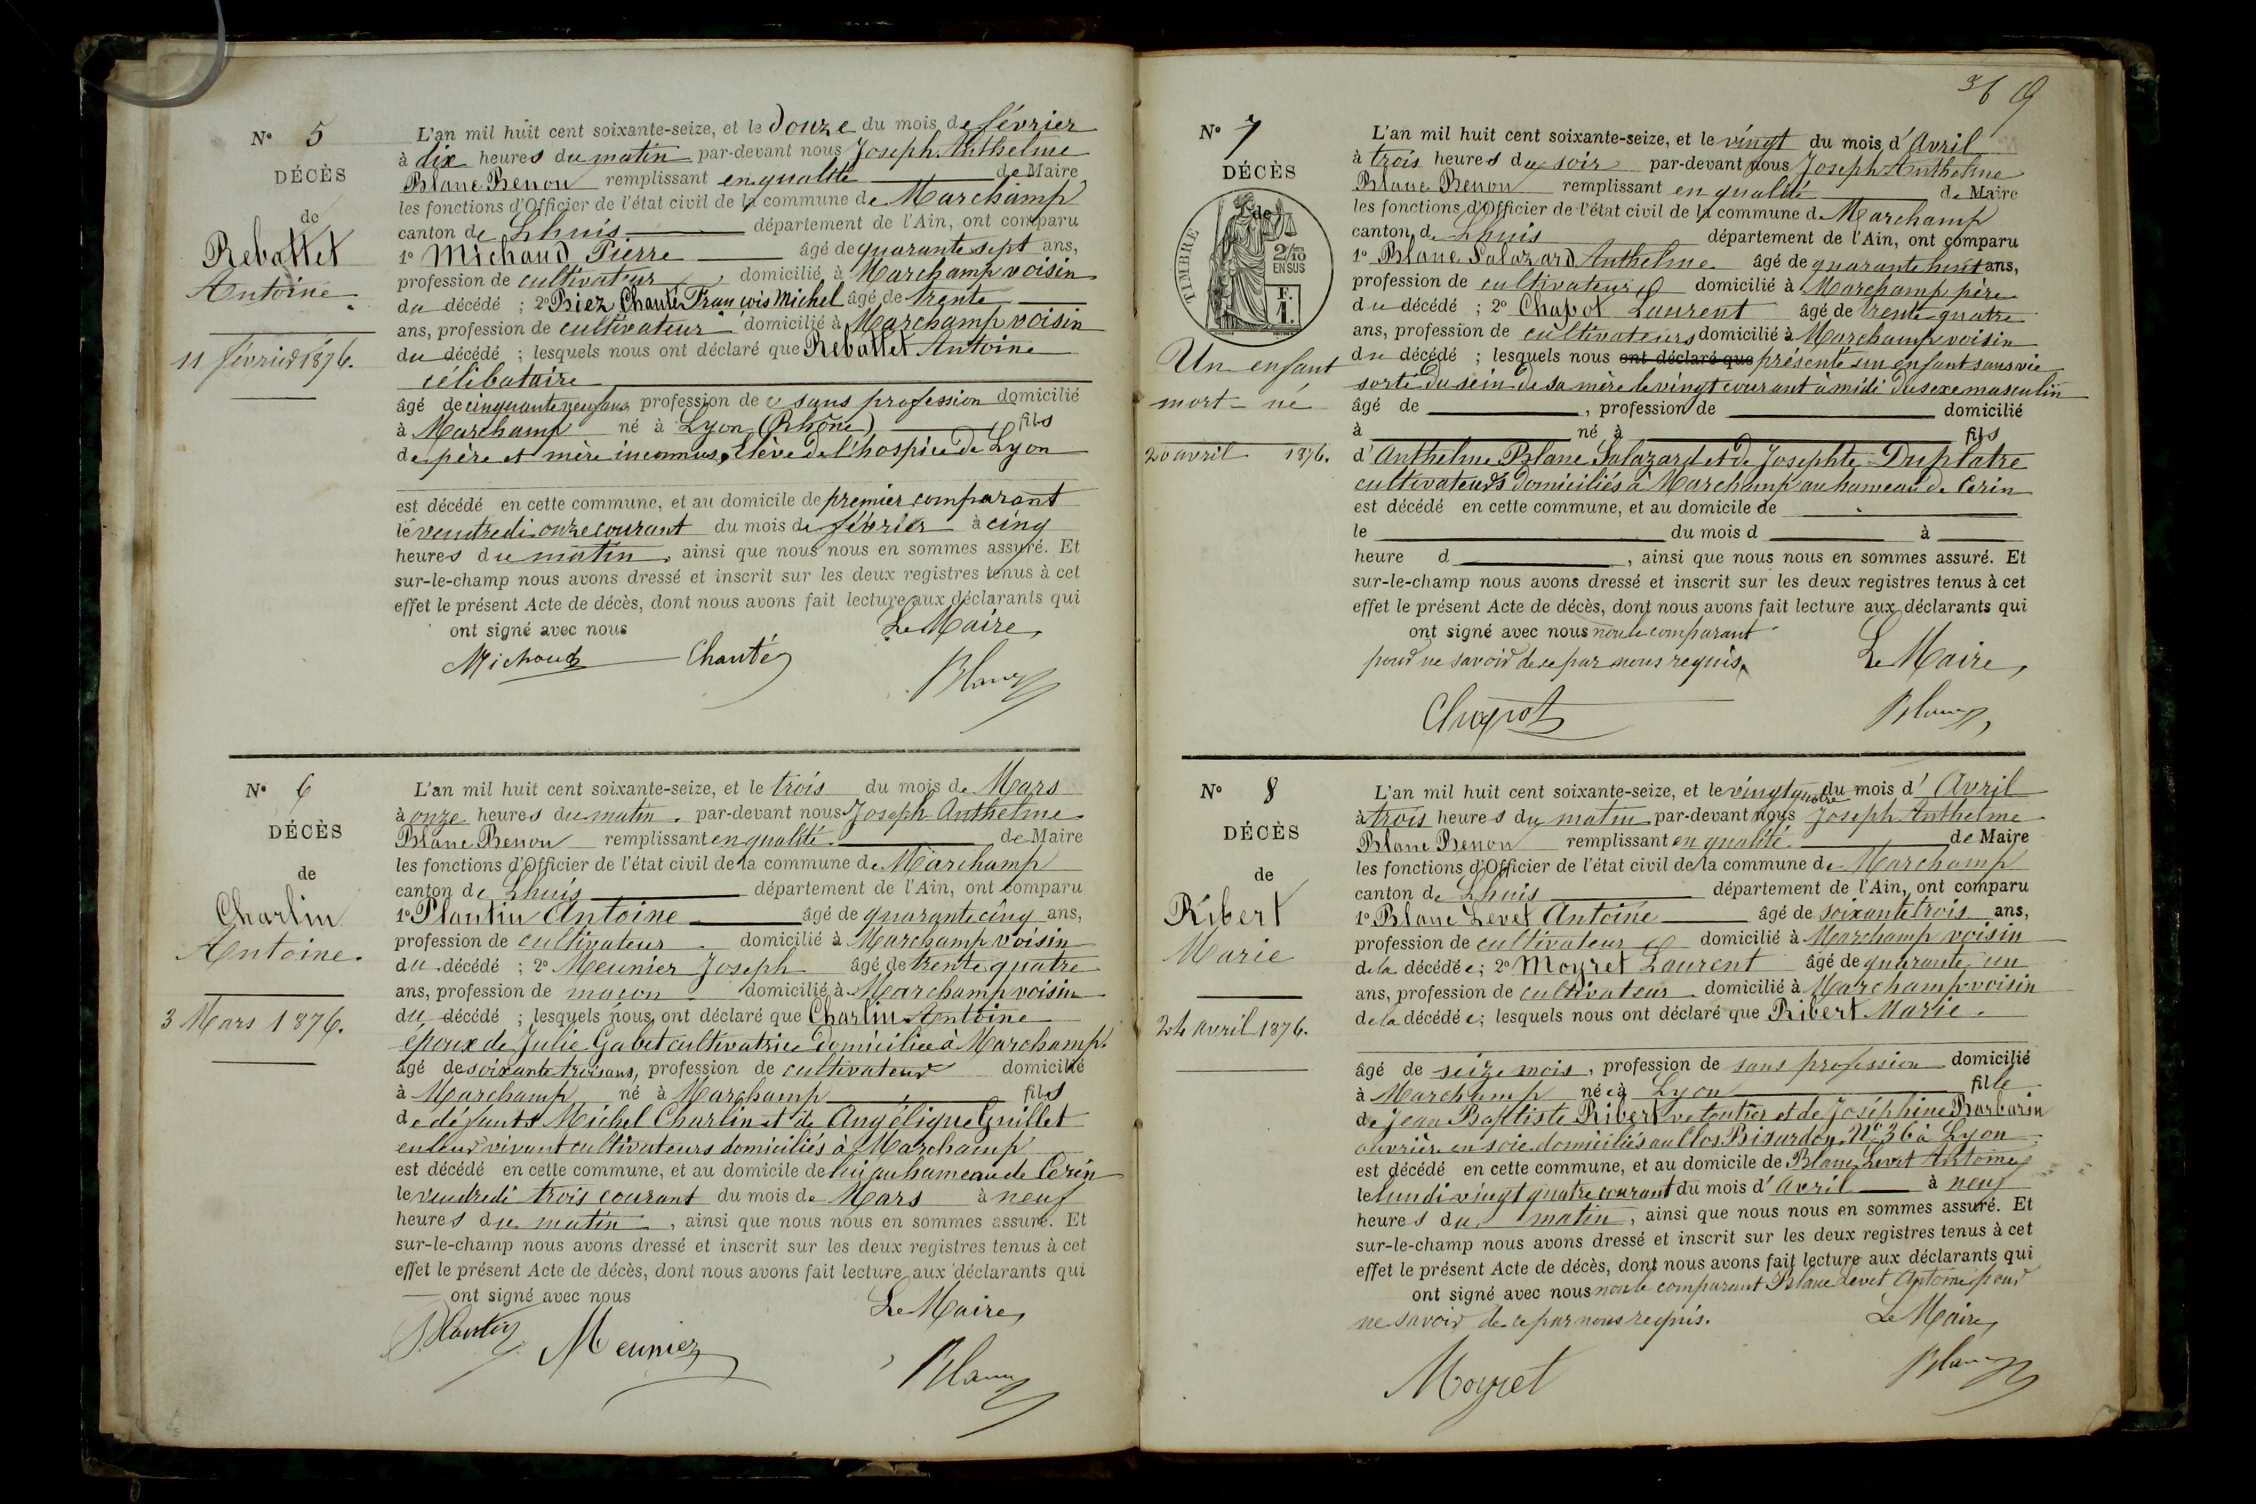 N° 5
DÉCÈS
de
Rebattet
Antoine.
11 février 1876.
L'an mil huit cent soixante-seize, et le Douze du mois de février
à dix heures du matin par-devant nous Joseph Anthelme
Blanc Benon remplissant en qualité de Maire
les fonctions d'Officier de l'état civil de la commune de Marchamp
canton de Lhuis département de l'Ain, ont comparu
1° Michaud Pierre âgé de quarante sept ans,
profession de cultivateur domicilié à Marchamp voisin
du décédé ; 2° Biez Chanté François Michel âgé de trente
ans, profession de cultivateur domicilié à Marchamp voisin
du décédé ; lesquels nous ont déclaré que Rebattet Antoine
célibataire
âgé de cinquante neuf ans profession de sans profession domicilié
à Marchamp né à Lyon (Rhône) fils
de père et mère inconnus, élève de l'hospice de Lyon
est décédé en cette commune, et au domicile de premier comparant
le vendredi onze courant du mois de février à cinq
heures du matin, ainsi que nous nous en sommes assuré. Et
sur-le-champ nous avons dressé et inscrit sur les deux registres tenus à cet
effet le présent Acte de décès, dont nous avons fait lecture aux déclarants qui
ont signé avec nous
Le Maire,
Michaud Chanté Blanc
N° 6
DÉCÈS
de
Charlin
Antoine.
3 Mars 1876.
L'an mil huit cent soixante-seize, et le trois du mois de Mars
à onze heures du matin. par-devant nous Joseph Anthelme
Blanc Benon remplissant en qualité de Maire
les fonctions d'Officier de l'état civil de la commune de Marchamp
canton de Lhuis département de l'Ain, ont comparu
1° Plantin Antoine âgé de quarante cinq ans,
profession de cultivateur domicilié à Marchamp voisin
du décédé ; 2° Meunier Joseph âgé de trente quatre
ans, profession de maçon domicilié à Marchamp voisin
du décédé ; lesquels nous ont déclaré que Charlin Antoine
époux de Julie Gabet cultivatrice domiciliée à Marchamp.
âgé de soixante trois ans, profession de cultivateur domicilié
à Marchamp né à Marchamp fils
de défunts Michel Charlin et de Angélique Guillet
en leur vivant cultivateurs domiciliés à Marchamp
est décédé en cette commune, et au domicile de lui au hameau de Cerin
le vendredi trois courant du mois de Mars à neuf
heures du matin, ainsi que nous nous en sommes assuré. Et
sur-le-champ nous avons dressé et inscrit sur les deux registres tenus à cet
effet le présent Acte de décès, dont nous avons fait lecture aux déclarants qui
ont signé avec nous
Le Maire,
Plantin Meunier Blanc
9
N° 7
DÉCÈS
de
TIMBRE
2/10
EN SUS
F.
1.
Un enfant
mort-né
20 avril 1876.
L'an mil huit cent soixante-seize, et le vingt du mois d'Avril
à trois heures du soir par-devant nous Joseph Anthelme
Blanc Benon remplissant en qualité de Maire
les fonctions d'Officier de l'état civil de la commune de Marchamp
canton de Lhuis département de l'Ain, ont comparu
1° Blanc Salazard Anthelme âgé de quarante huit ans,
profession de cultivateur domicilié à Marchamp père
du décédé ; 2° Chapot Laurent âgé de trente quatre
ans, profession de cultivateurs domicilié à Marchamp voisin
du décédé ; lesquels nous ont déclaré que présenté un enfant sans vie
sorti du sein de sa mère le vingt courant à midi du sexe masculin
âgé de , profession de domicilié
à né à fils
d'Anthelme Blanc Salazard et de Josephte Duplatre
cultivateurs domiciliés à Marchamp au hameau de Cerin
est décédé en cette commune, et au domicile de
le du mois d à
heure d , ainsi que nous nous en sommes assuré. Et
sur-le-champ nous avons dressé et inscrit sur les deux registres tenus à cet
effet le présent Acte de décès, dont nous avons fait lecture aux déclarants qui
ont signé avec nous non le comparant
pour ne savoir de ce par nous requis. Le Maire,
Chapot Blanc
N° 8
DÉCÈS
de
Ribert
Marie
24 avril 1876.
L'an mil huit cent soixante-seize, et le vingt quatre du mois d'Avril
à trois heures du matin par-devant nous Joseph Anthelme
Blanc Benon remplissant en qualité de Maire
les fonctions d'Officier de l'état civil de la commune de Marchamp
canton de Lhuis département de l'Ain, ont comparu
1° Blanc Levet Antoine âgé de soixante trois ans,
profession de cultivateur domicilié à Marchamp voisin
de la décédée ; 2° Moyret Laurent âgé de quarante un
ans, profession de cultivateur domicilié à Marchamp voisin
de la décédée ; lesquels nous ont déclaré que Ribert Marie.
âgé de seize mois, profession de sans profession domicilié
à Marchamp née à Lyon fille
de Jean Baptiste Ribert et de Joséphine Barbarin
ouvrière en soie domiciliés au Clos Bisardon N° 36 à Lyon
est décédé en cette commune, et au domicile de Blanc Levet Antoine
le lundi vingt quatre courant du mois d'avril à neuf
heures du matin, ainsi que nous nous en sommes assuré. Et
sur-le-champ nous avons dressé et inscrit sur les deux registres tenus à cet
effet le présent Acte de décès, dont nous avons fait lecture aux déclarants qui
ont signé avec nous non le comparant Blanc Levet Antoine pour
ne savoir de ce par nous requis. Le Maire,
Moyret Blanc